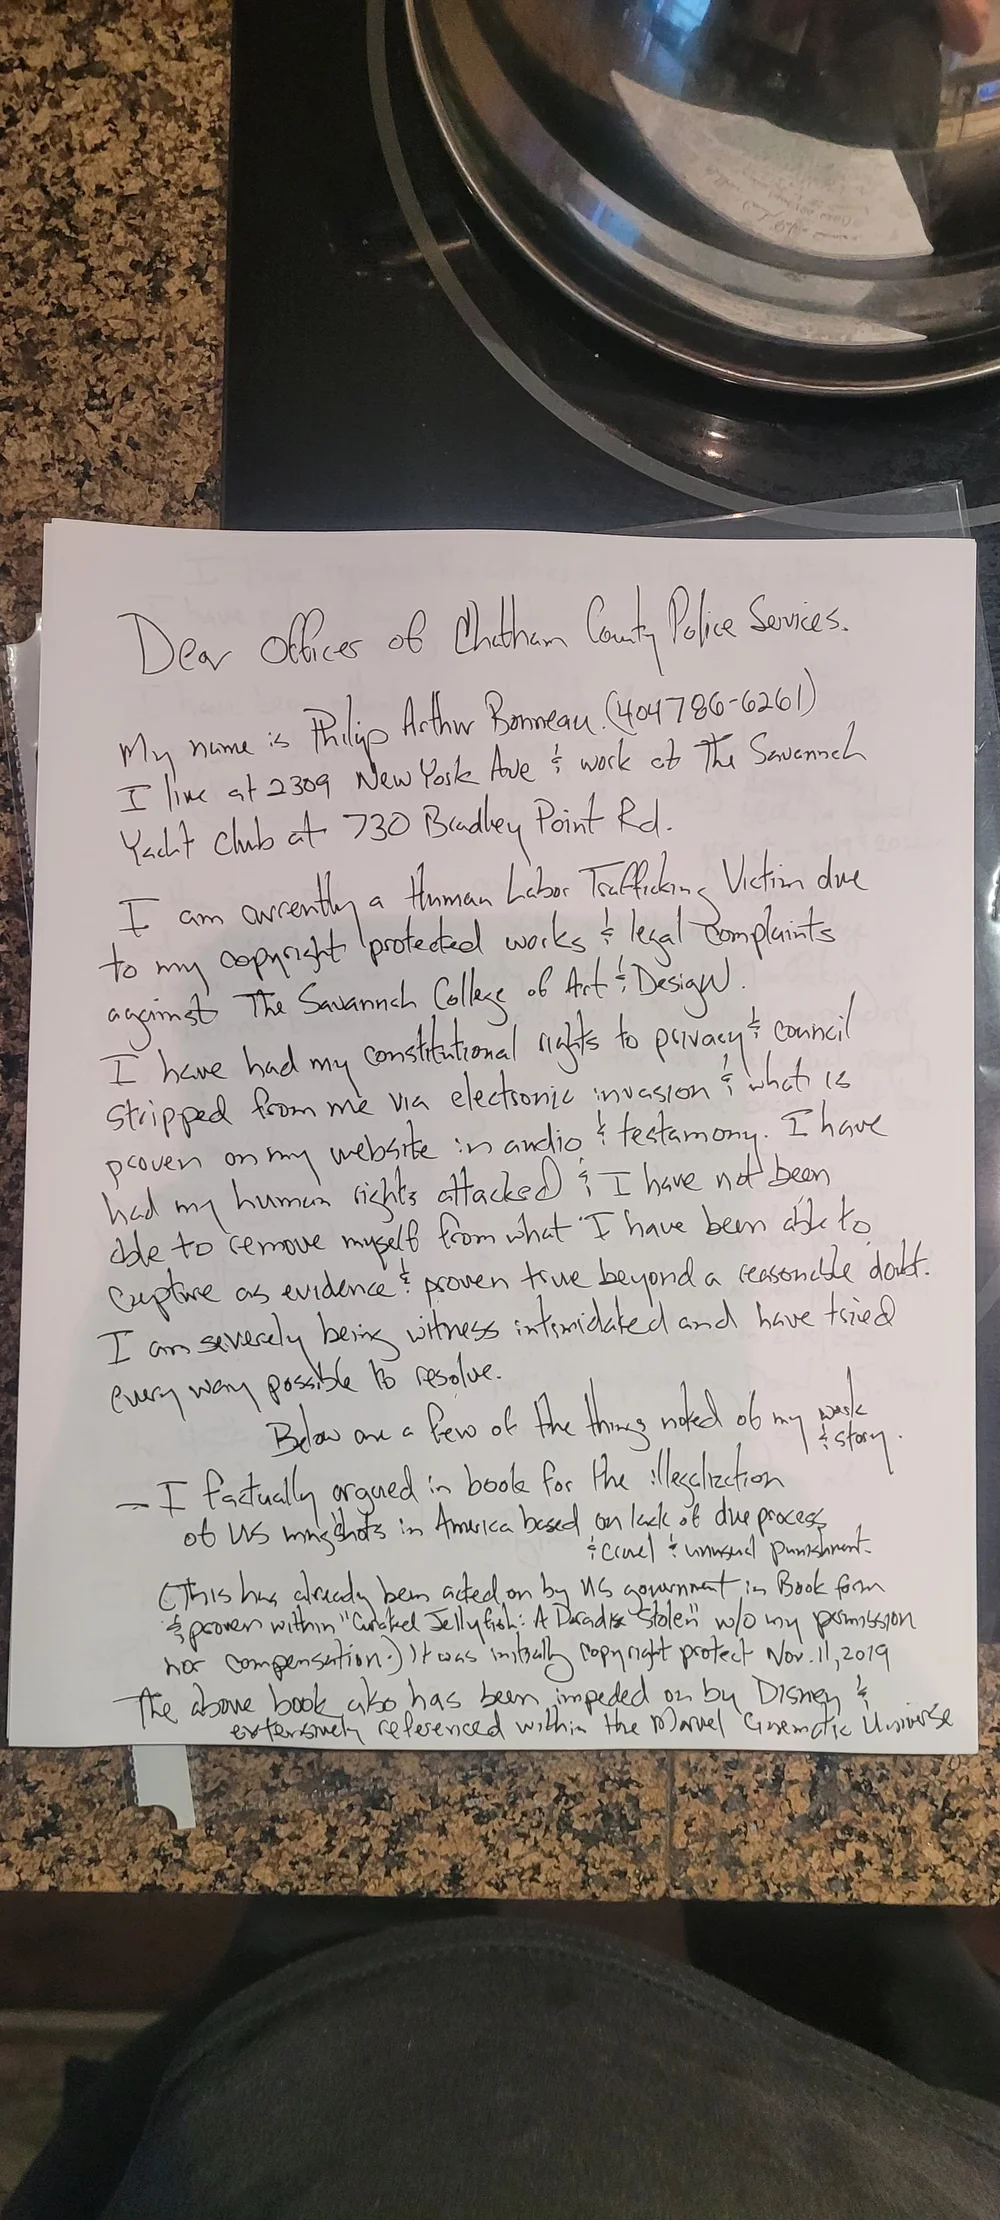 Dear Officers of Chatham County Police Services.
My name is Philip Arthur Bonneau. (404 786-6261)
I live at 2309 New York Ave & work at The Savannah
Yacht Club at 730 Bradley Point Rd.
I am currently a Human Labor Trafficking Victim due
to my copyright protected works & legal Complaints
against The Savannah College of Art & Design.
I have had my constitutional rights to privacy & council
stripped from me via electronic invasion & what is
proven on my website in audio & testamony. I have
had my human rights attacked & I have not been
able to remove myself from what I have been able to
Capture as evidence & proven true beyond a reasonable doubt.
I am severely being witness intimidated and have tried
every way possible to resolve.
Below are a few of the things noted of my work
& story.
— I factually argued in book for the illegalization
of US mugshots in America based on lack of due process
& cruel & unusual punishment.
(This has already been acted on by US government in Book form
& proven within "Curated Jellyfish: A Paradise Stolen" w/o my permission
nor compensation.) It was initially copyright protect Nov. 11, 2019
The above book also has been impeded on by Disney &
extensively referenced within the Marvel Cinematic Universe